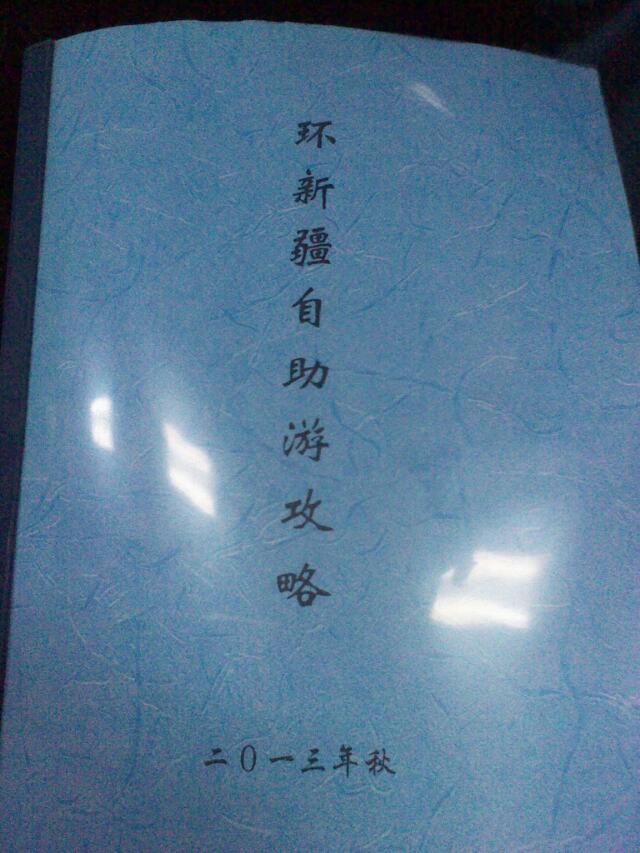 环新疆自助游攻略
二〇一三年秋